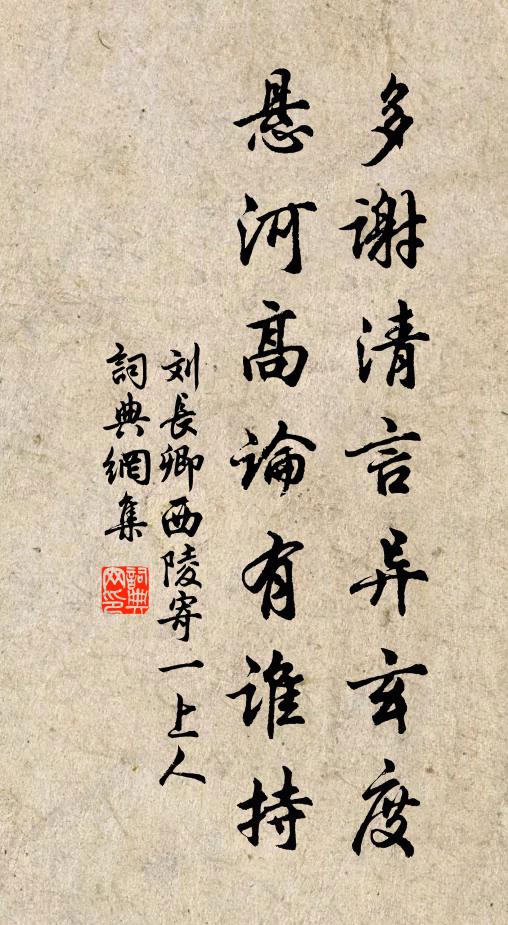 多謝清言异玄度
悬河高論有谁持
刘長卿西陵寄一上人
詞典網集
詞典
网印